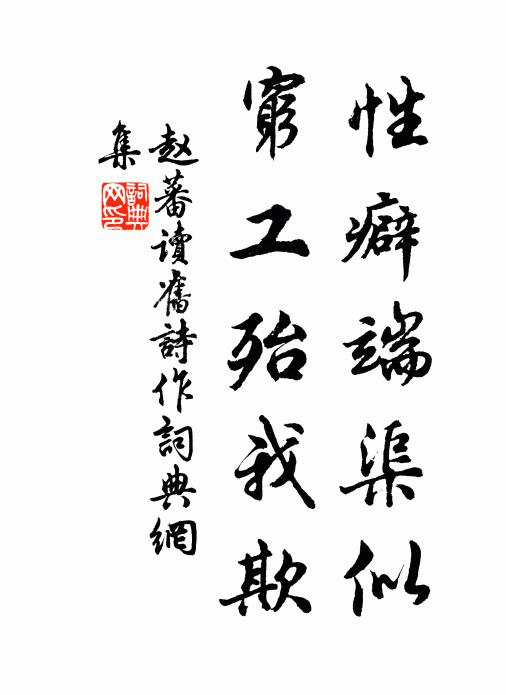 性癖端渠似
窮工殆我欺
赵蕃讀舊詩作詞典網
集
詞典网印